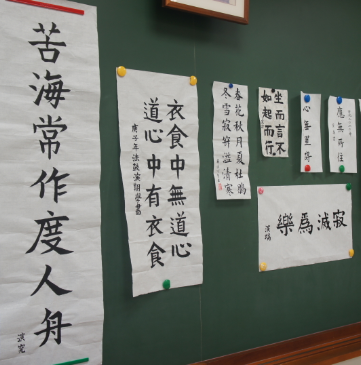 苦海常作度人舟
衣食中無道心
道心中有衣食
春花秋月夏杜鵑
冬雪寂寥溢清寒
坐而言不
如起而行
心無罣礙
應無所住
寂滅為樂